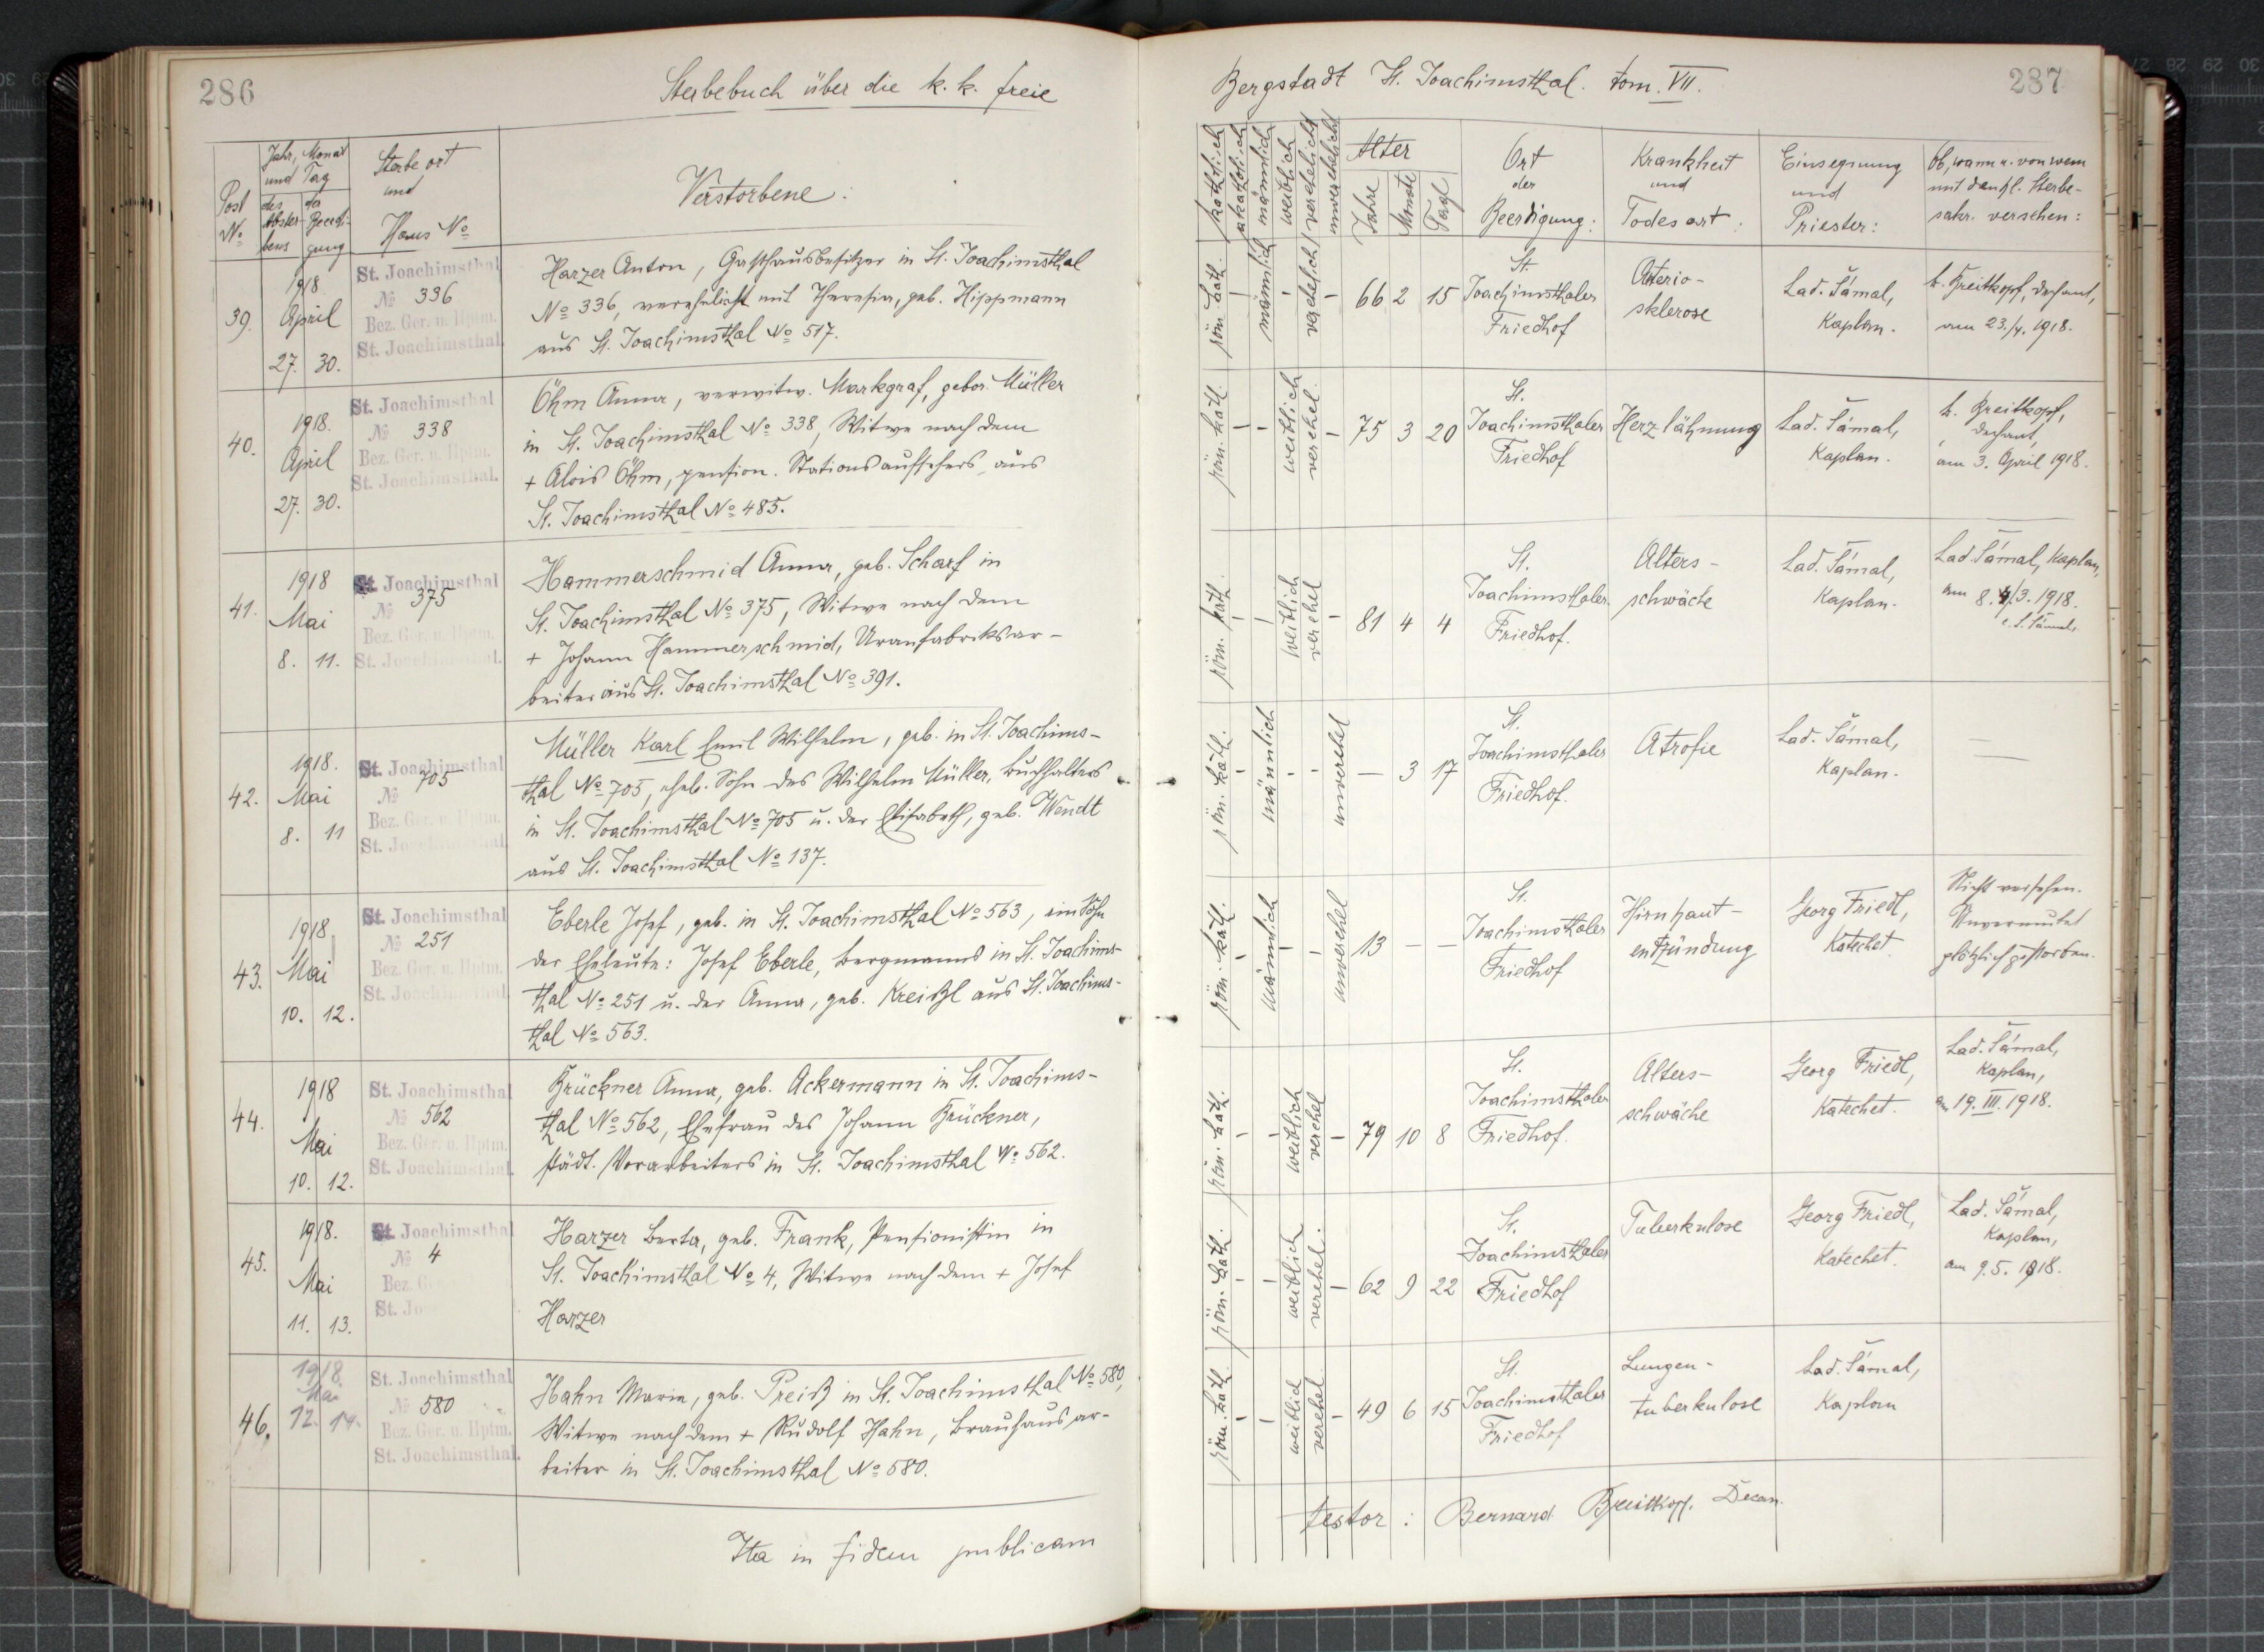 286
Sterbebuch über die k. k. freie
Post
No
Jahr, Monat
und Tag
des
Abster-
bens
der
Beerdi-
gung
Sterbeort
und
Haus No
Verstorbene:
39.
1918
April
27. 30.
St. Joachimsthal
No 336
Bez. Ger. u. Hptm.
St. Joachimsthal.
Harzer Anton, Gasthausbesitzer in St. Joachimsthal
No 336, verehelicht mit Theresia, geb. Hippmann
aus St. Joachimsthal No 517.
40.
1918.
April
27. 30.
St. Joachimsthal
No 338
Bez. Ger. u. Hptm.
St. Joachimsthal.
Öhm Anna, verwitw. Markgraf, gebor. Müller
in St. Joachimsthal No 338, Witwe nach dem
+ Alois Öhm, pension. Stationsaufsehers aus
St. Joachimsthal No 485.
41.
1918
Mai
8. 11.
St. Joachimsthal
No 375
Bez. Ger. u. Hptm.
St. Joachimsthal.
Hammerschmid Anna, geb. Scharf in
St. Joachimsthal No 375, Witwe nach dem
+ Johann Hammerschmid, Uranfabriksar-
beiter aus St. Joachimsthal No 391.
42.
1918.
Mai
8. 11
St. Joachimsthal
No 705
Bez. Ger. u. Hptm.
St. Joachimsthal
Müller Karl Emil Wilhelm, geb. in St. Joachims-
thal No 705, ehel. Sohn des Wilhelm Müller, Buchhalters
in St. Joachimsthal No 705 u. der Elisabeth, geb. Wendt
aus St. Joachimsthal No 137.
43.
1918.
Mai
10. 12.
St. Joachimsthal
No 251
Bez. Ger. u. Hptm.
St. Joachimsthal
Eberle Josef, geb. in St. Joachimsthal No 563, ein Sohn
der Eheleute: Josef Eberle, Bergmanns in St. Joachims-
thal No 251 u. der Anna, geb. Kreißl aus St. Joachims-
thal No 563.
44.
1918
Mai
10. 12.
St. Joachimsthal
No 562
Bez. Ger. u. Hptm.
St. Joachimsthal.
Brückner Anna, geb. Ackermann in St. Joachims-
thal No 562, Ehefrau des Johann Brückner,
städt. Vorarbeiters in St. Joachimsthal No 562.
45.
1918.
Mai
11. 13.
St. Joachimsthal
No 4
Bez. G
St. Jo
Harzer Berta, geb. Frank, Pensionistin in
St. Joachimsthal No 4, Witwe nach dem + Josef
Harzer
46.
1918.
Mai
12. 14.
St. Joachimsthal
No 580
Bez. Ger. u. Hptm.
St. Joachimsthal.
Hahn Maria, geb. Preiß in St. Joachimsthal No 580,
Witwe nach dem + Rudolf Hahn, Brauhausar-
beiter in St. Joachimsthal No 580.
Ita in fidem publicam
Bergstadt St. Joachimsthal. tom. VII.
287
katholisch
akatholisch
männlich
weiblich
verehelicht
unverehelicht
Alter
Jahre
Monate
Tage
Ort
der
Beerdigung:
Krankheit
und
Todesart:
Einsegnung
und
Priester:
Ob, wann u. von wem
mit den hl. Sterbe-
sakr. versehen:
röm. kath. - männlich - verehelicht - 66 2 15
St.
Joachimsthaler
Friedhof
Arterio-
sklerose
Lad. Šámal,
Kaplan.
B. Breitkopf, Dechant,
am 23./4. 1918.
röm. kath. - - weiblich verehel. - 75 3 20
St.
Joachimsthaler
Friedhof
Herzlähmung
Lad. Šámal,
Kaplan.
B. Breitkopf,
Dechant,
am 3. April 1918.
röm. kath. - - weiblich verehel - 81 4 4
St.
Joachimsthaler
Friedhof.
Alters-
schwäche
Lad. Šámal,
Kaplan.
Lad. Šámal, Kaplan,
am 8./3. 1918.
röm. kath. - männlich - - unverehel — 3 17
St.
Joachimsthaler
Friedhof.
Atrofie
Lad. Šámal,
Kaplan.
—
röm. kath. - männlich - - unverehel 13 — —
St.
Joachimsthaler
Friedhof
Hirnhaut-
entzündung
Georg Friedl,
Katechet.
Nicht versehen.
Unvermutet
plötzlich gestorben.
röm. kath. - - weiblich verehel - 79 10 8
St.
Joachimsthaler
Friedhof.
Alters-
schwäche
Georg Friedl,
Katechet.
Lad. Šámal,
Kaplan,
am 19. III. 1918.
röm. kath. - - weiblich verehel. - 62 9 22
St.
Joachimsthaler
Friedhof
Tuberkulose
Georg Friedl,
Katechet.
Lad. Šámal,
Kaplan,
am 9. 5. 1918.
röm. kath. - - weiblich verehel. - 49 6 15
St.
Joachimsthaler
Friedhof
Lungen-
tuberkulose
Lad. Šámal,
Kaplan
testor: Bernard Breitkopf. Decan.